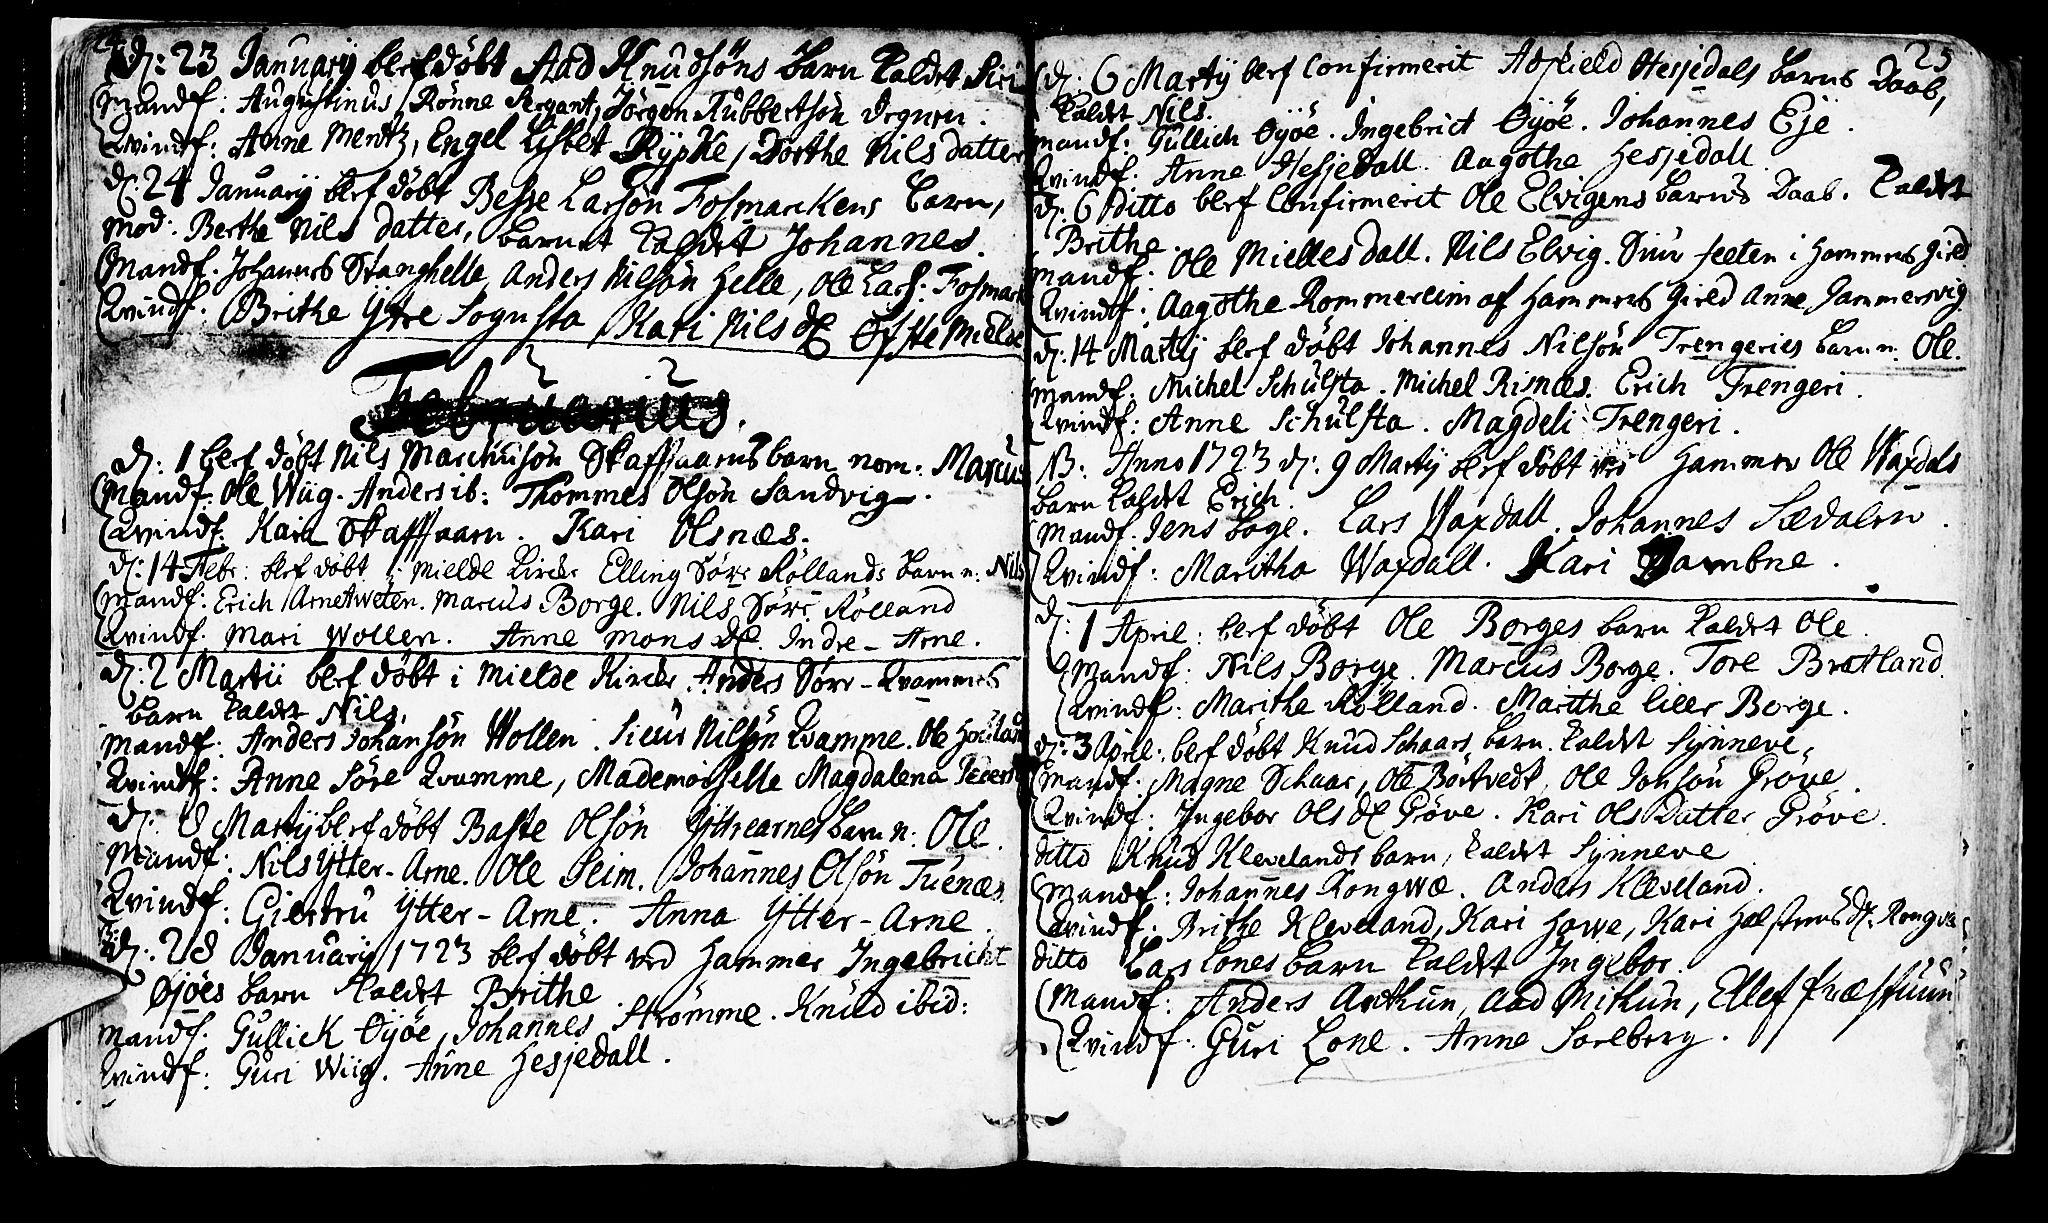 24
d: 23 Januarij blef döbt Aad Knudsöns barn kaldet Siri
Mandf: Augustinus Rönne Sergant, Jörgen Rubbertsön Degnen.
Qvindf: Anne Mentz, Engel Lisbet Rÿpke, Dorthe Nils datter
d: 24 Januarij blef döbt Besse Larsön Fosmarkens barn,
Mod: Berthe Nils datter, barnet kaldet Johannes.
Mandf. Johannes Stanghelle, Anders Nilsön Helle, Ole Lars: Fosmark
Qvindf. Brithe Ÿtre Sognsta, Kari Nils dr Öfste Mielde
Februarius.
d: 1 blef döbt Nils Marcusön Skaftnaarns barn nom: Marcus
Mandf: Ole Wiig. Anders ib: Thommes Olsön Sandvig.
Qvindf: Kari Skaftnaarn. Kari Olsnæs.
d: 14 Febr: blef döbt i Mielde Kirche Elling Söre Röllands barn n: Nils
Mandf: Erich Arnetweten. Marcus Borge. Nils Söre Rölland
Qvindf. Mari Wollen. Anne Mons dr. Indre-Arne.
d: 2 Martii blef döbt i Mielde Kirche Anders Söre-Qvammes
barn kaldet Nils.
Mandf: Anders Johansön Wollen. Siur Nilsön Qvamme. Ole
Qvindf: Anne Söre Qvamme, Mademoiselle Magdalena
d: 8 Martij blef döbt Baste Olsön Ÿttrearnes barn n: Ole.
Mandf: Nils Ytter-Arne. Ole Seim. Johannes Olsön Tuenæs.
Qvindf: Giertru Ytter-Arne. Anna Ytter-Arne.
NB: d: 28 Januarij 1723 blef döbt ved Hammer Ingebricht
Øjöes barn kaldet Brithe.
Mandf. Gullick Öyöe, Johannes Strömme. Knud ibid:
Qvindf: Guri Wiig. Anne Hesjedall.
25
d: 6 Martij blef Confirmerit Adskield Hesjedals barns Daab,
kaldet Nils.
Mandf: Gullich Öyöe. Ingebrict Öyöe. Johannes Eje.
Qvindf. Anne Hesjedall. Aagothe Hesjedall
d: 6 ditto blef Confirmerit Ole Elvigens barns Daab. kaldet
Brithe.
Mandf: Ole Mielles dall. Nils Elvig. Siur i Hammers Gield
Qvindf: Aagothe Rommereim af Hammers Gield Anne Hammersvig
d: 14 Martij blef döbt Johannes Nilsön Trengeries barn n. Ole.
Mandf. Michel Schulsta. Michel Risnæs. Erich Trengeri.
Qvindf: Anne Schulsta. Magdeli Trengeri.
NB: Anno 1723 d: 9 Martij blef döbt ved Hammer Ole Waxdals
barn kaldet Erich.
Mandf. Jens Lars Waxdall. Johannes Sædalen.
Qvindf: Maritha Waxdall. Kari
d: 1 April: blef döbt Ole Borges barn kaldet Ole
Mandf: Nils Borge. Marcus Borge. Tore Bratland.
Qvindf: Marithe Rölland. Marithe liller Borge.
d: 3 April: blef döbt Knud Schaars barn kaldet Synneve,
Mandf: Magne Schaar, Ole Börtvedt, Ole Jonsön Gröve.
Qvindf: Ingebor Ols dr Gröve. Kari Ols Datter Gröve.
ditto Knud Klevelands barn, kaldet Synneve
Mandf: Johannes Rongwæ. Anders Kleveland.
Qvindf: Brithe Kleveland, Kari Howe, Kari dr. Rongva
ditto Lars Lones barn kaldet Ingebor.
Mandf: Anders Arthun, Aad Mitkun, Ellef Præstuun
Qvindf: Guri Lone. Anne Soelberg.